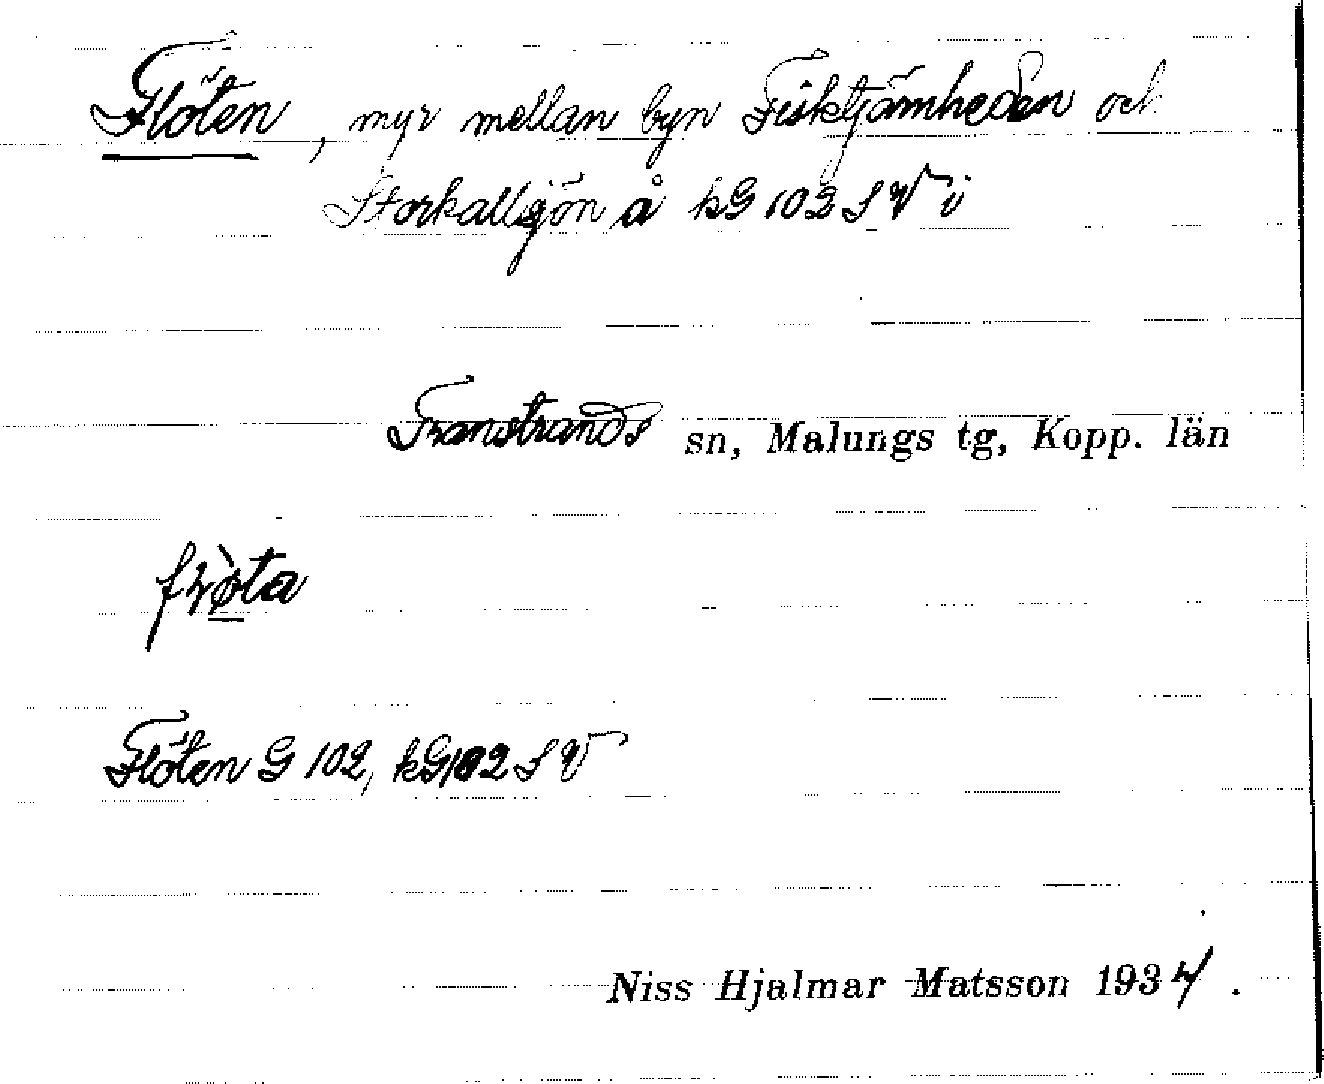 Flöten, myr mellan byn Fisktjärnheden och
Storkalltjön å kG 102 SV i
Transtrands sn, Malungs tg, Kopp. län
Flöten G 102, kG 102 SV
Niss Hjalmar Matsson 1934.